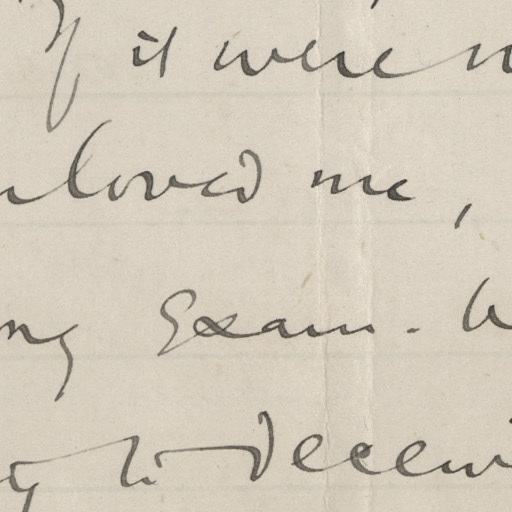 If it were n
loved me,
ng Exam. W
y to Deceiv